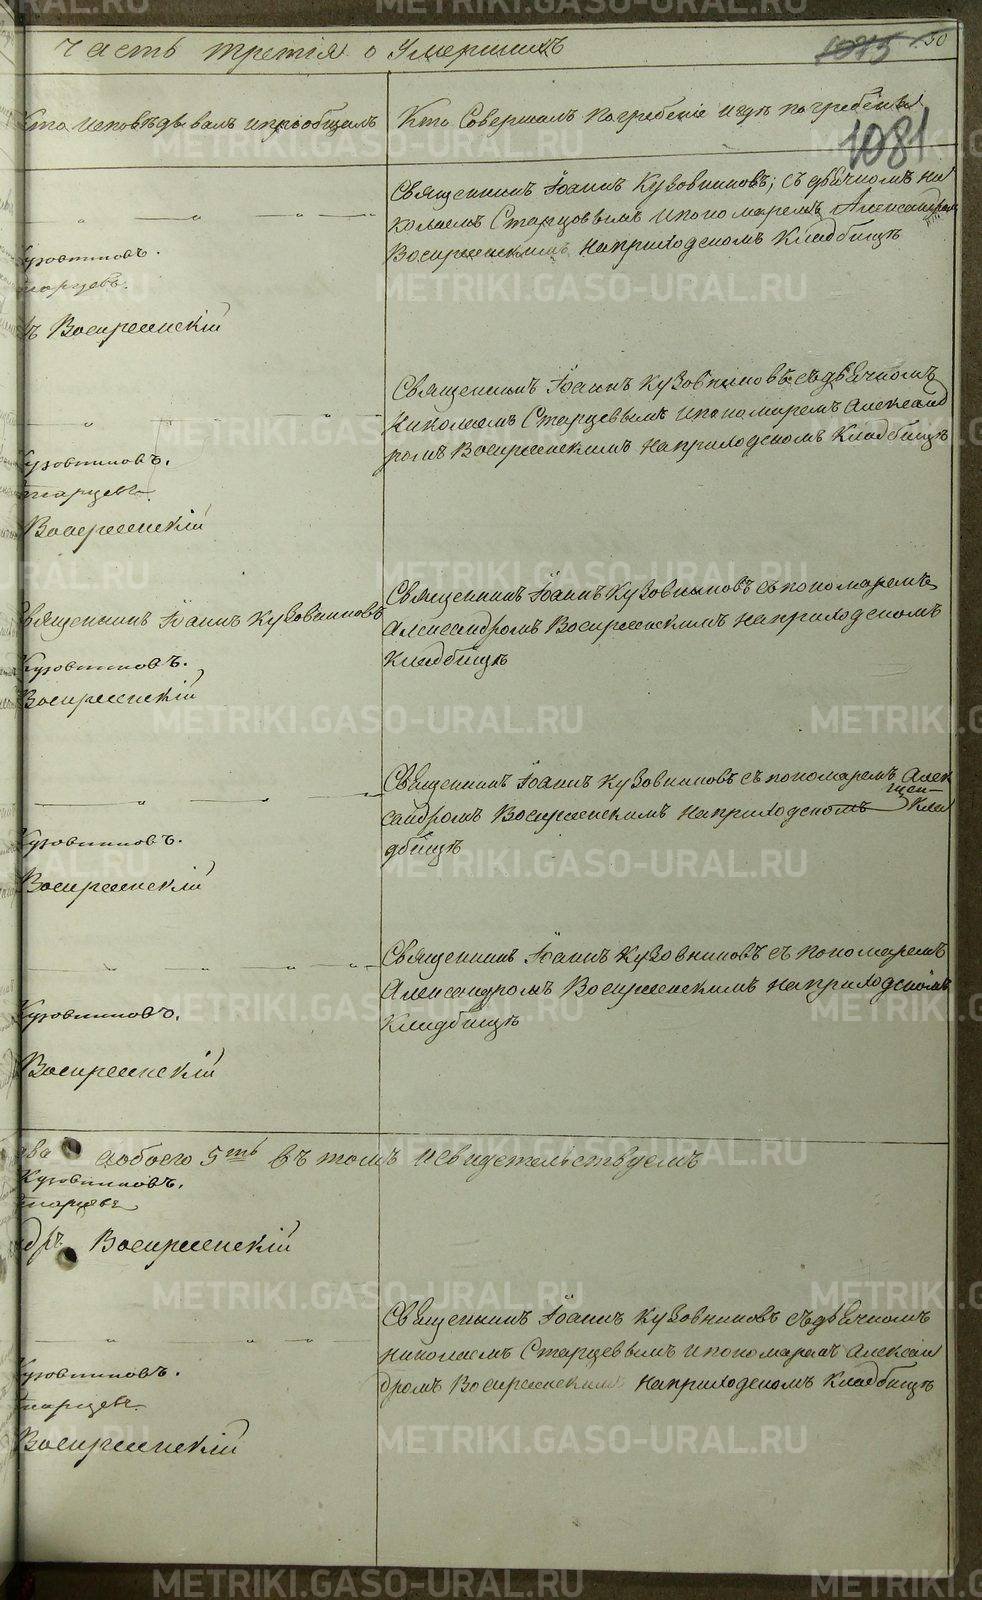 Часть третія о Умершихъ
1075 50
Кто Исповѣдывалъ и пріобщалъ
Кто Совершалъ погребеніе и гдѣ погребены
1081
Священникъ Іоаннъ Кузовниковъ; съ дьячкомъ Ни
колаемъ Старцовымъ и пономаремъ Александромъ
Воскресенскимъ на приходскомъ Кладбищѣ
Кузовниковъ.
Старцевъ.
ръ Воскресенскій
Священникъ Іоаннъ Кузовниковъ съ дьячкомъ
Николаемъ Старцевымъ и пономаремъ Александ
ромъ Воскресенскимъ на приходскомъ Кладбищѣ
Кузовниковъ.
Старцевъ.
Воскресенскій
Священникъ Іоаннъ Кузовниковъ
Священникъ Іоаннъ Кузовниковъ съ пономаремъ
Александромъ Воскресенскимъ на приходскомъ
Кладбищѣ
Кузовниковъ.
Воскресенскій
Священникъ Іоаннъ Кузовниковъ съ пономаремъ Алек
сандромъ Воскресенскимъ на приходском Кла
дбищѣ
Кузовниковъ.
Воскресенскій
Священникъ Іоаннъ Кузовниковъ съ пономаремъ
Александромъ Воскресенскимъ на приходскомъ
Кладбищѣ
Кузовниковъ.
Воскресенскій
два а обоего 5ть въ томъ и свидетельствуемъ
Кузовниковъ.
Старцевъ
ндръ Воскресенскій
Священникъ Іоаннъ Кузовниковъ съ дьячкомъ
Николаемъ Старцевымъ и пономаремъ Алексан
дромъ Воскресенскимъ на приходскомъ Кладбищѣ
Кузовниковъ.
Старцевъ.
Воскресенскій
METRIKI.GASO-URAL.RU